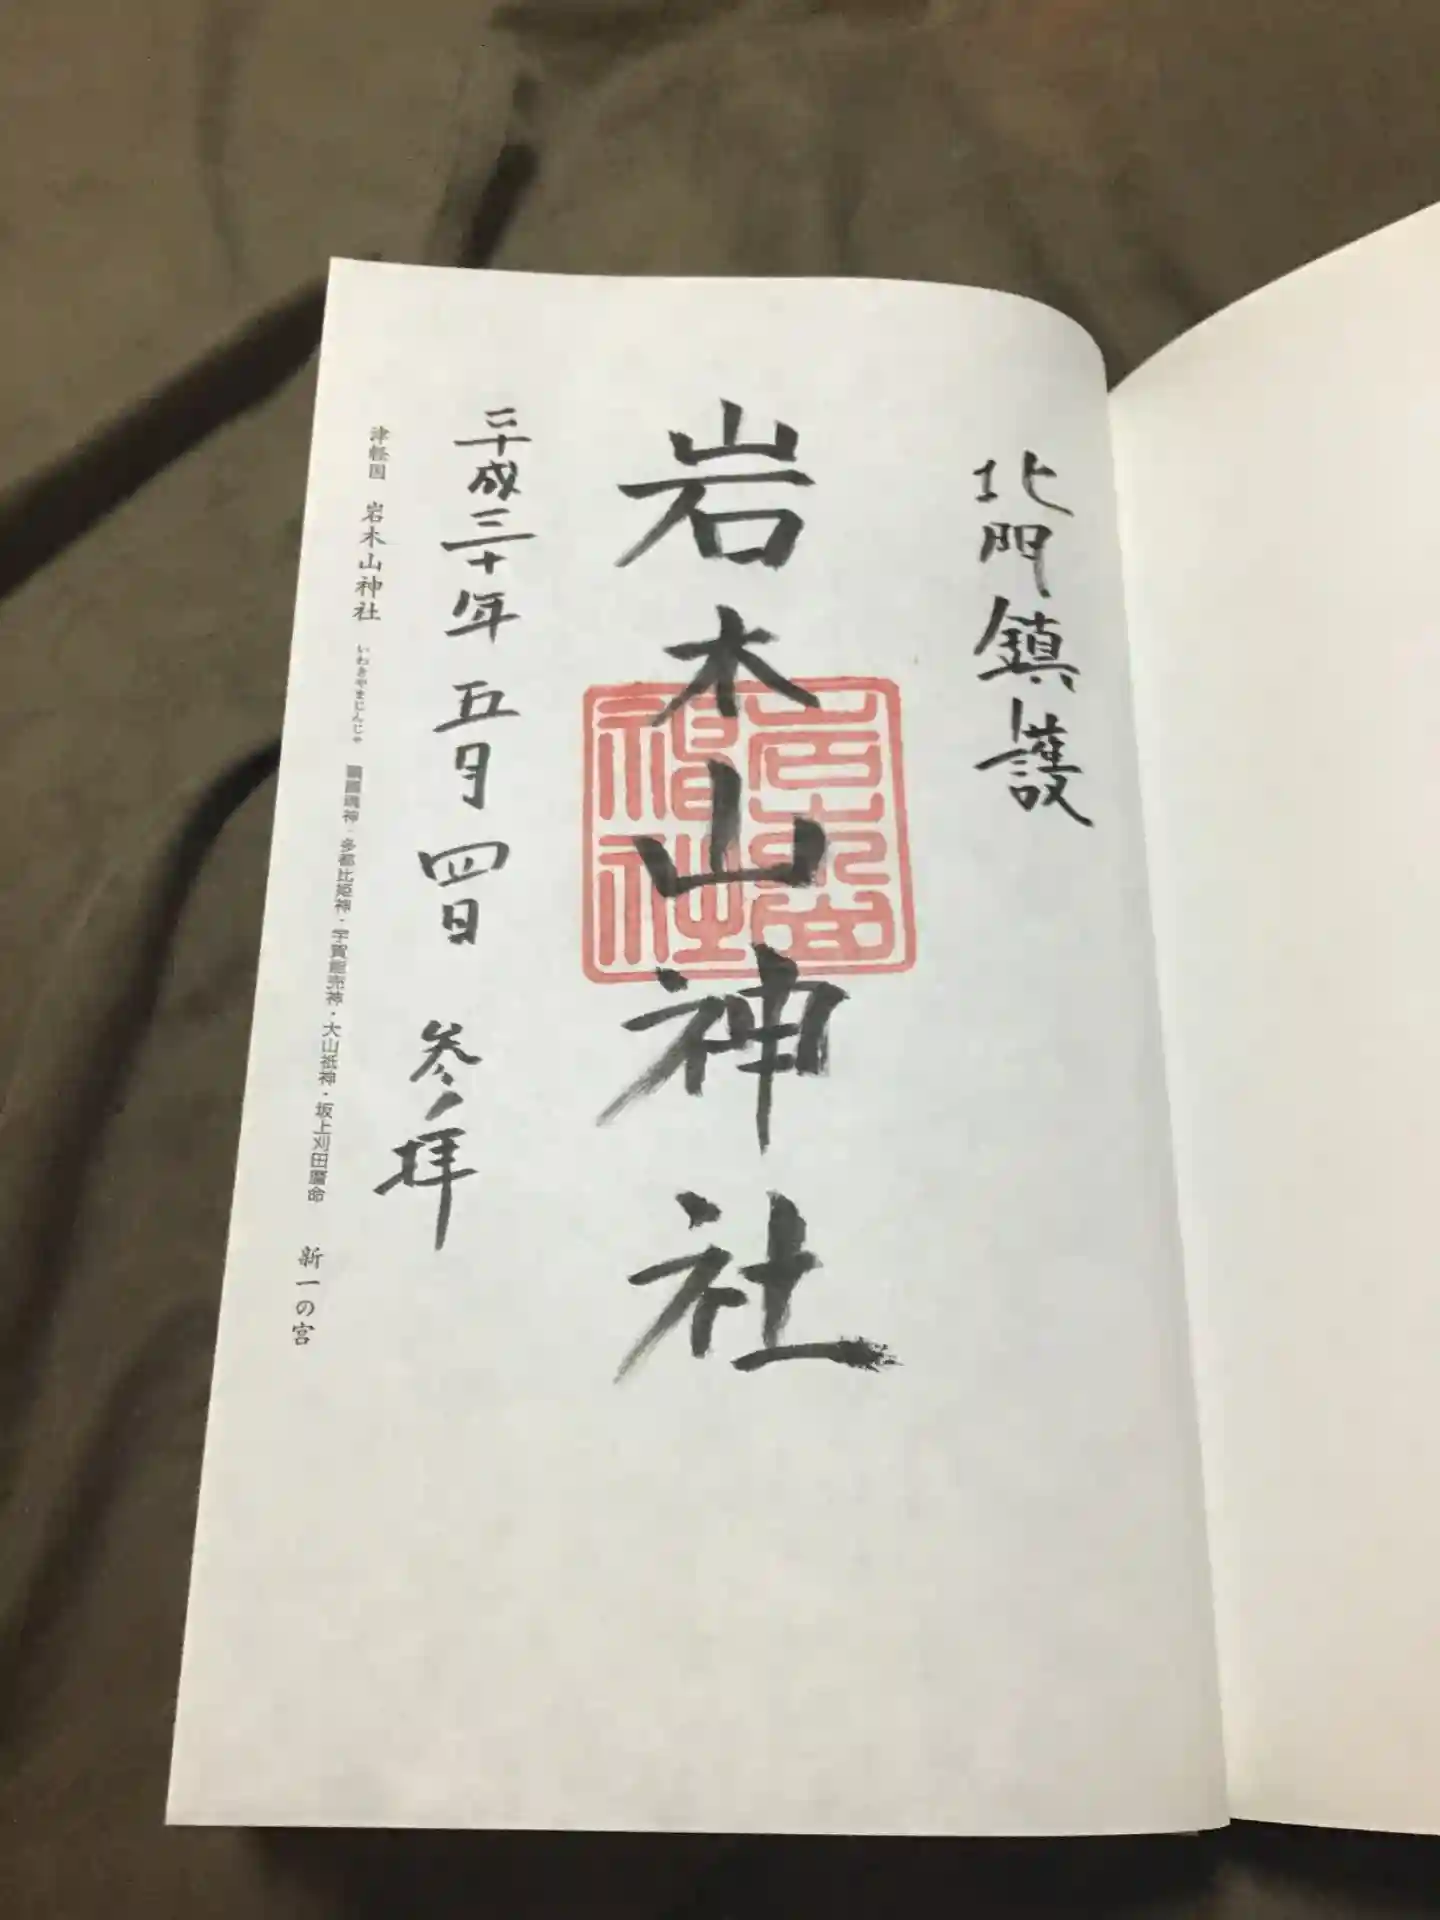 北門鎮護
岩木山神社
岩木山神社
平成三十年 五月 四日 参拝
津軽国 岩木山神社 いわきやまじんじゃ 顕國魂神・多都比姫神・宇賀能売神・大山祇神・坂上刈田麿命 新一の宮